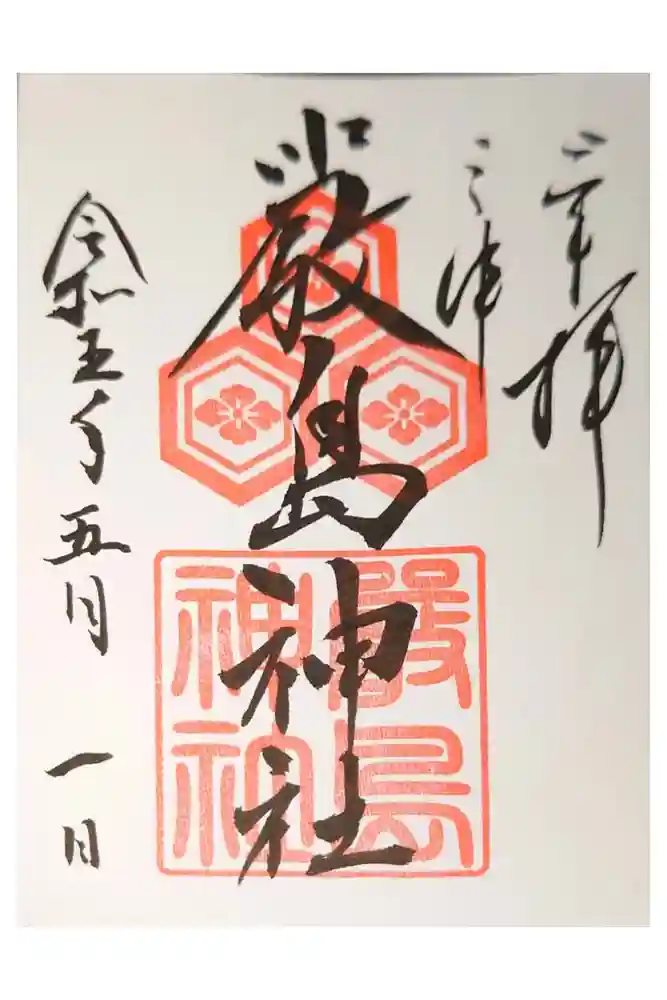 奉拝
三津
厳島神社
嚴島
神社
令和五年五月一日